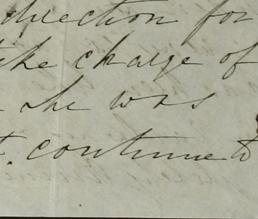 direction for
the charge of
she was
continue to